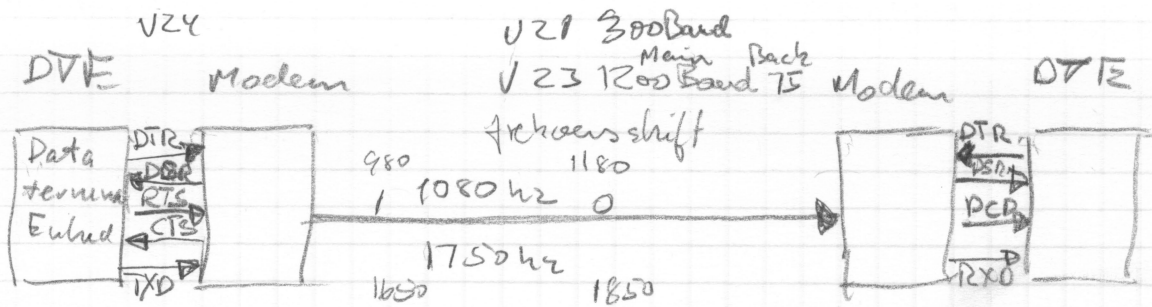 V24
V21 300 Baud
Main Back
V23 1200 Baud 75
DTE
Modem
Modem
DTE
frekvensskift
Data
terminal
Enhed
DTR
DSR
RTS
CTS
TXD
980
1180
1080 hz
1
0
1750 hz
1650
1850
DTR
DSR
DCD
RXD